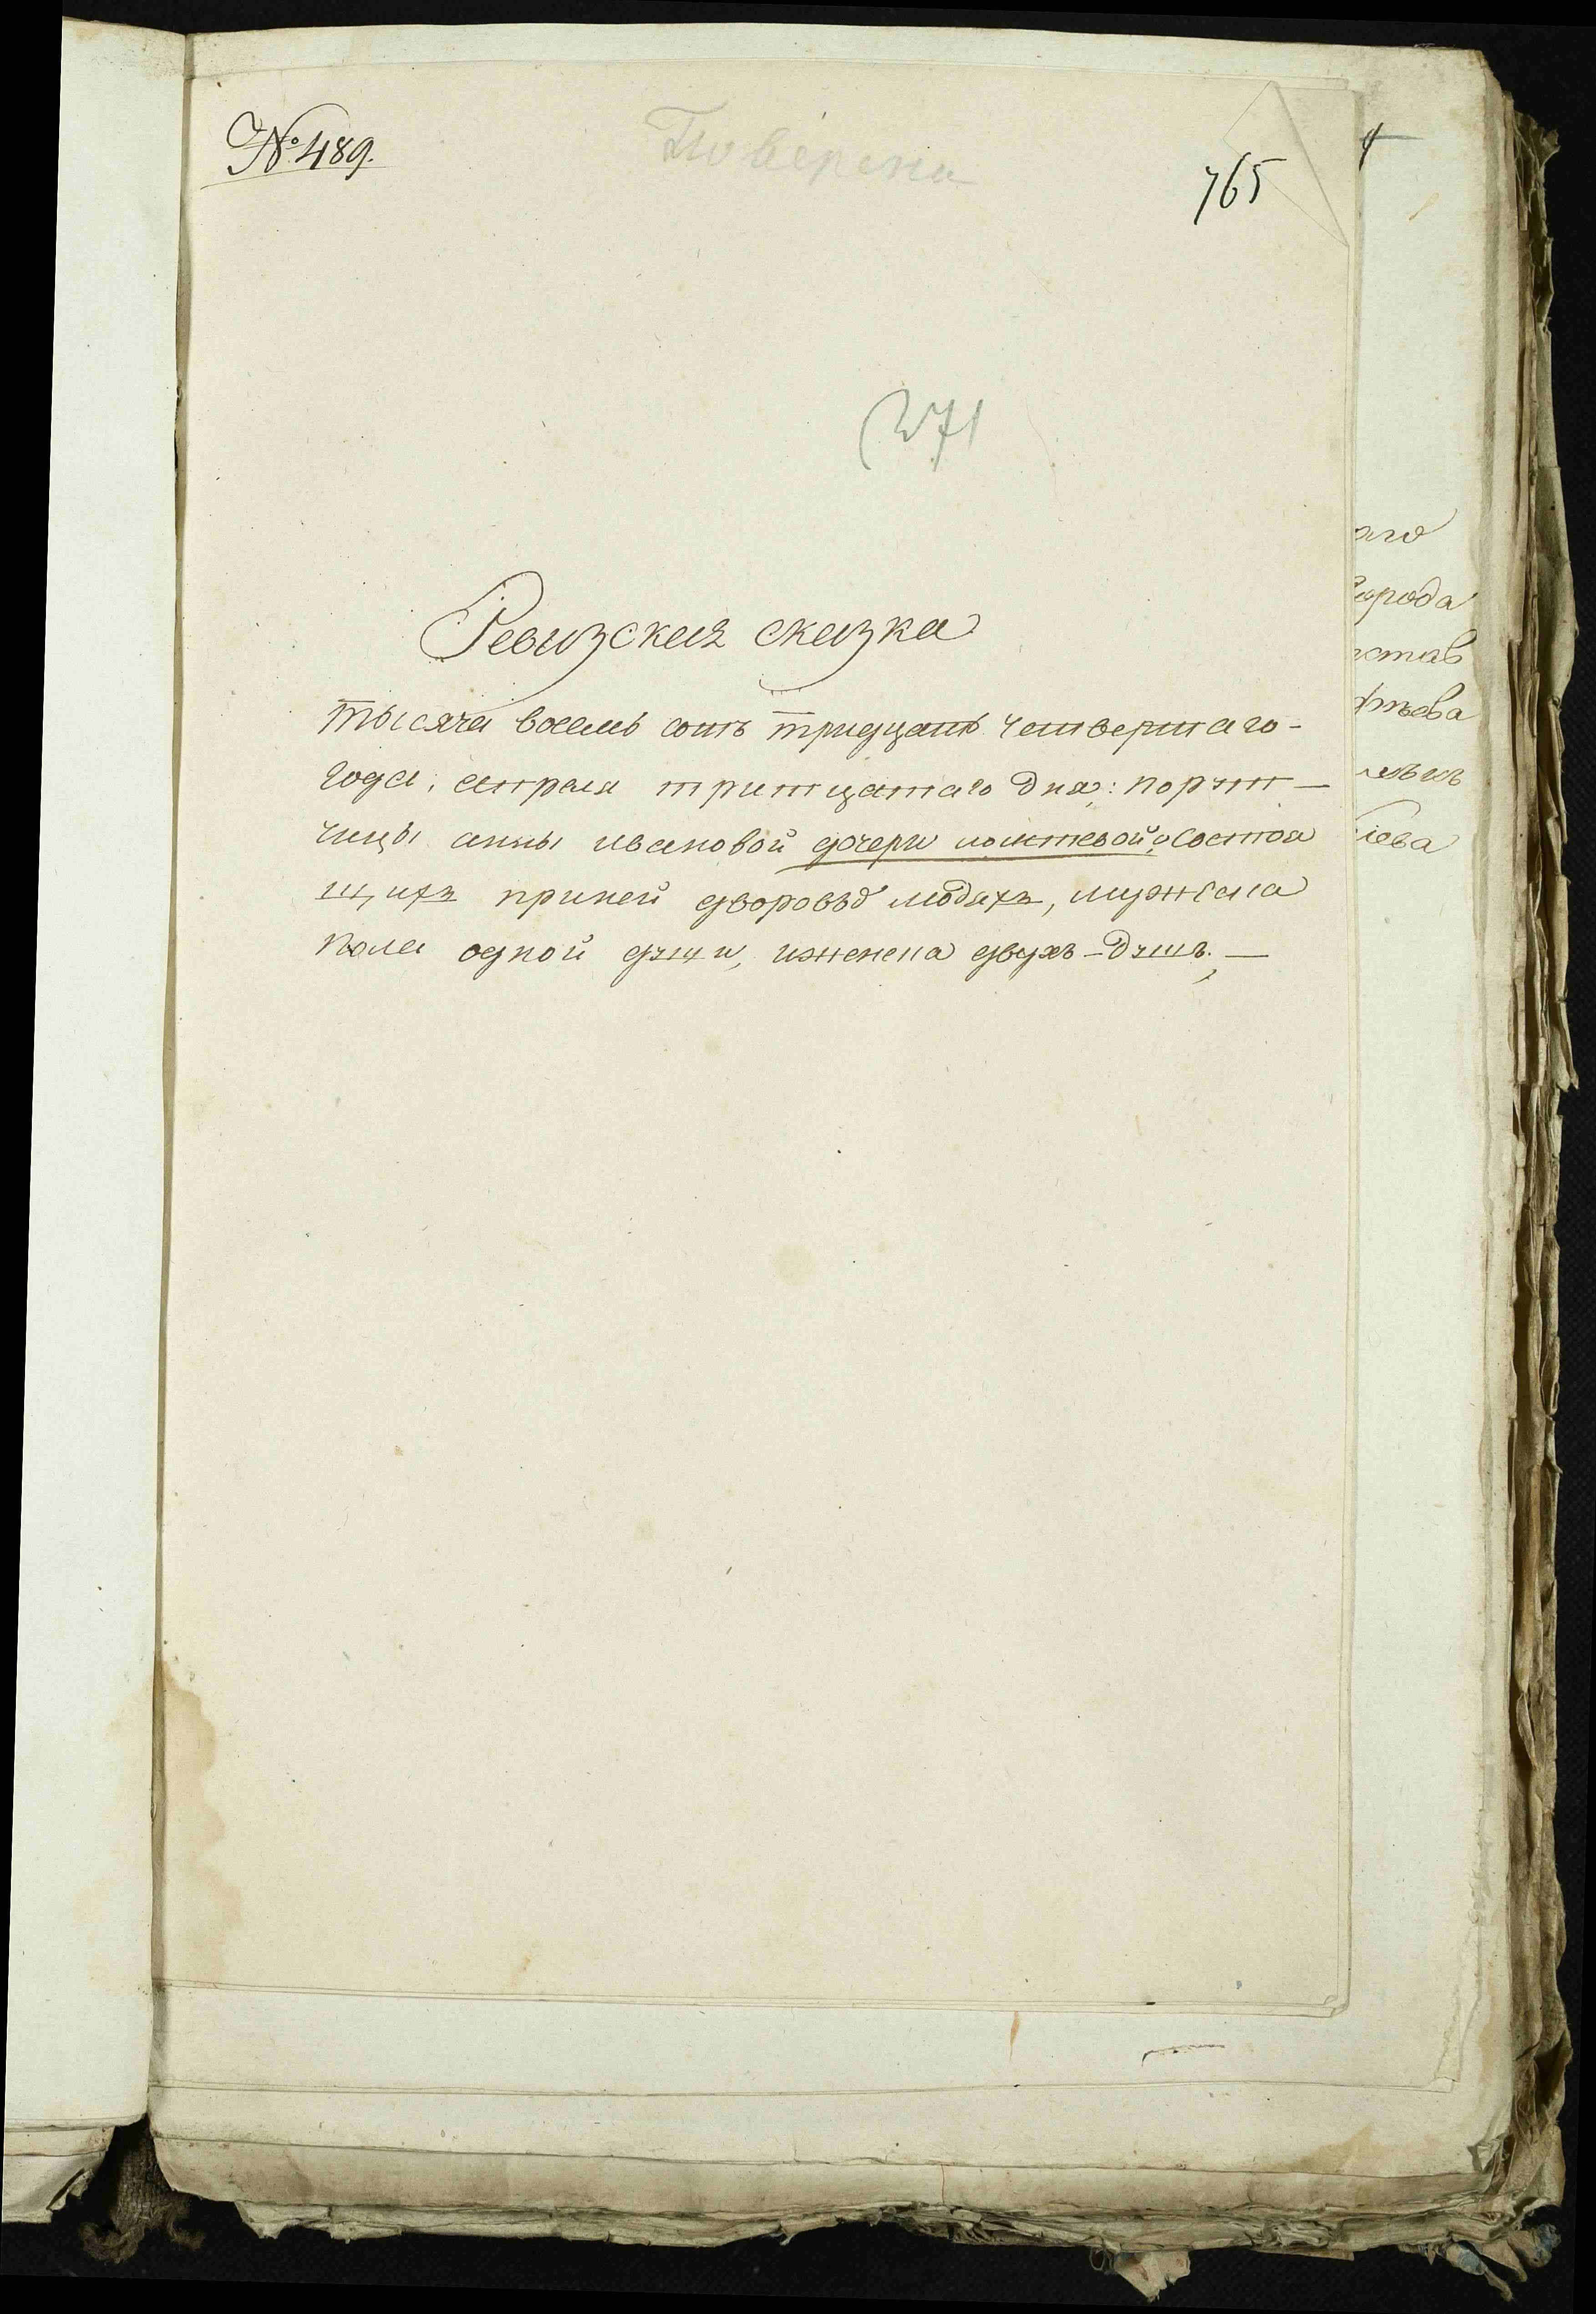 № 489.
Поверена
765
4
371
Ревизская сказка
тысяча восемь сотъ тридцать четвертаго-
года, апреля тритцатаго дня: порут-
чицы анны ивановой дочери локтевой, о состоя
щихъ приней дворовыхъ людяхъ, мужска
пола одной души, иженска двухъ-душъ. —
аго
города
ева